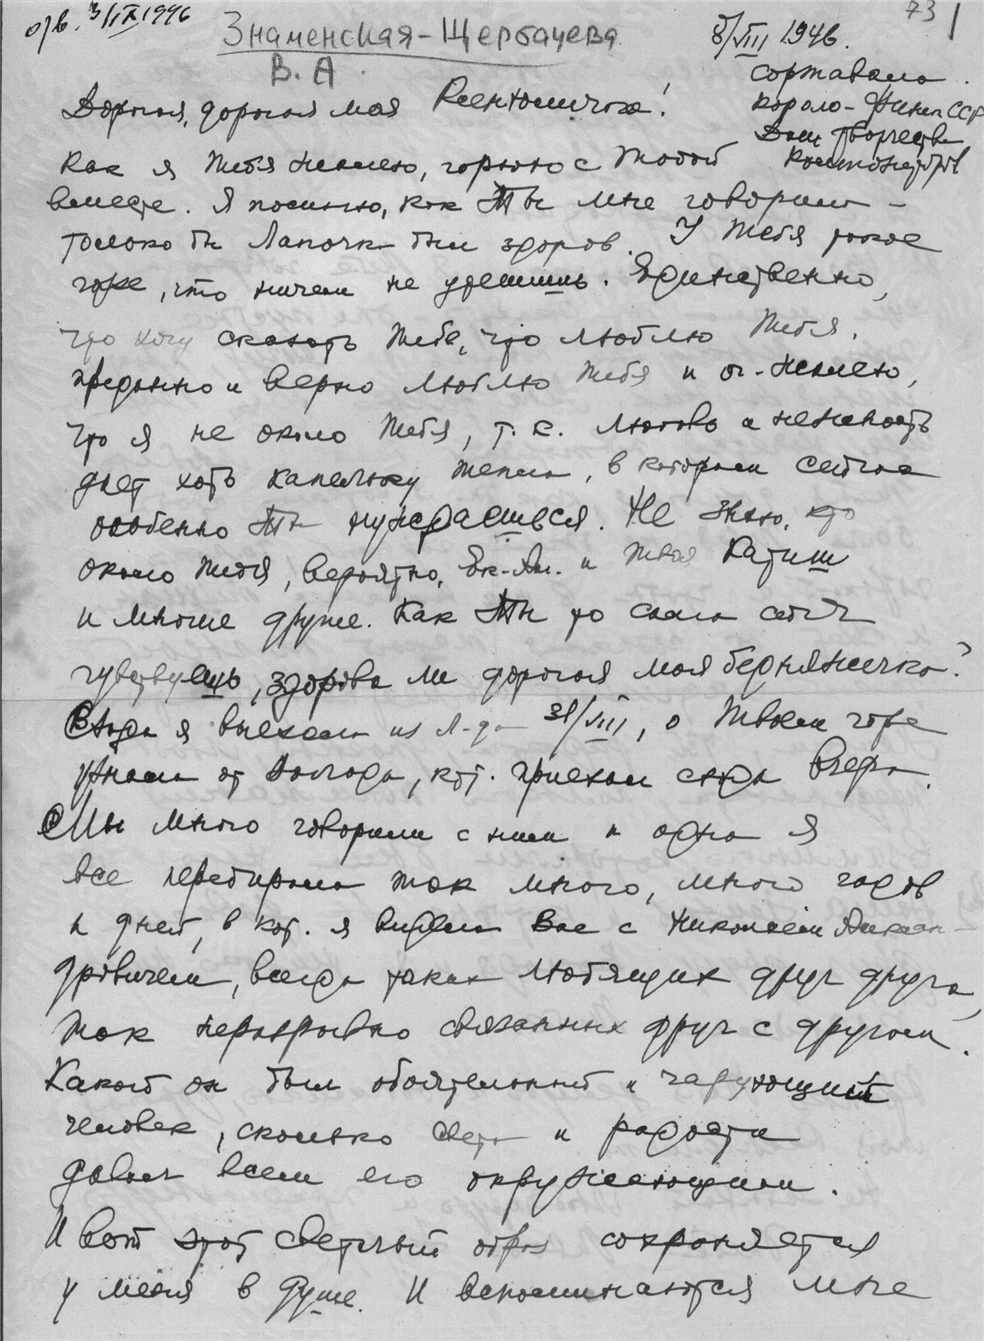 отв. 3/IX 1946
73
Знаменская-Щербачева
В. А.
8/VIII 1946.
Сортавала.
Карело-Финск ССР
Дом творчества
композиторов
Дорогая, дорогая моя Ксенюшичка!
Как я Тебя жалею, горюю с Тобой
вместе. Я помню, как Ты мне говорила –
только бы Лапочка был здоров. У Тебя такое
горе, что ничем не утешишь. Единственно,
что хочу сказать Тебе, что люблю Тебя,
преданно и верно люблю Тебя и жалею,
что я не около Тебя, т. к. любовь и нежность
дает хоть капельку тепла, в котором сейчас
особенно Ты нуждаешься. Не знаю, кто
около Тебя, вероятно, Ек. и Твоя Катиш
и многие другие. Как Ты то сама себя
чувствуешь, здорова ли дорогая моя бедняжечка?
Сюда я выехала из Л-да 31/VII, о Твоем горе
узнала от, кот. приехал сюда вчера.
Мы много говорили с ним и одна я
все перебирала так много, много годов
и дней, в кот. я видела Вас с Николаем Алексан-
дровичем, всегда таких любящих друг друга,
так неразрывно связанных друг с другом.
Какой он был обаятельный и чарующий
человек, сколько света и радости
давал всем его окружающим.
И вот этот светлый образ сохраняется
у меня в душе. И вспоминаются мне